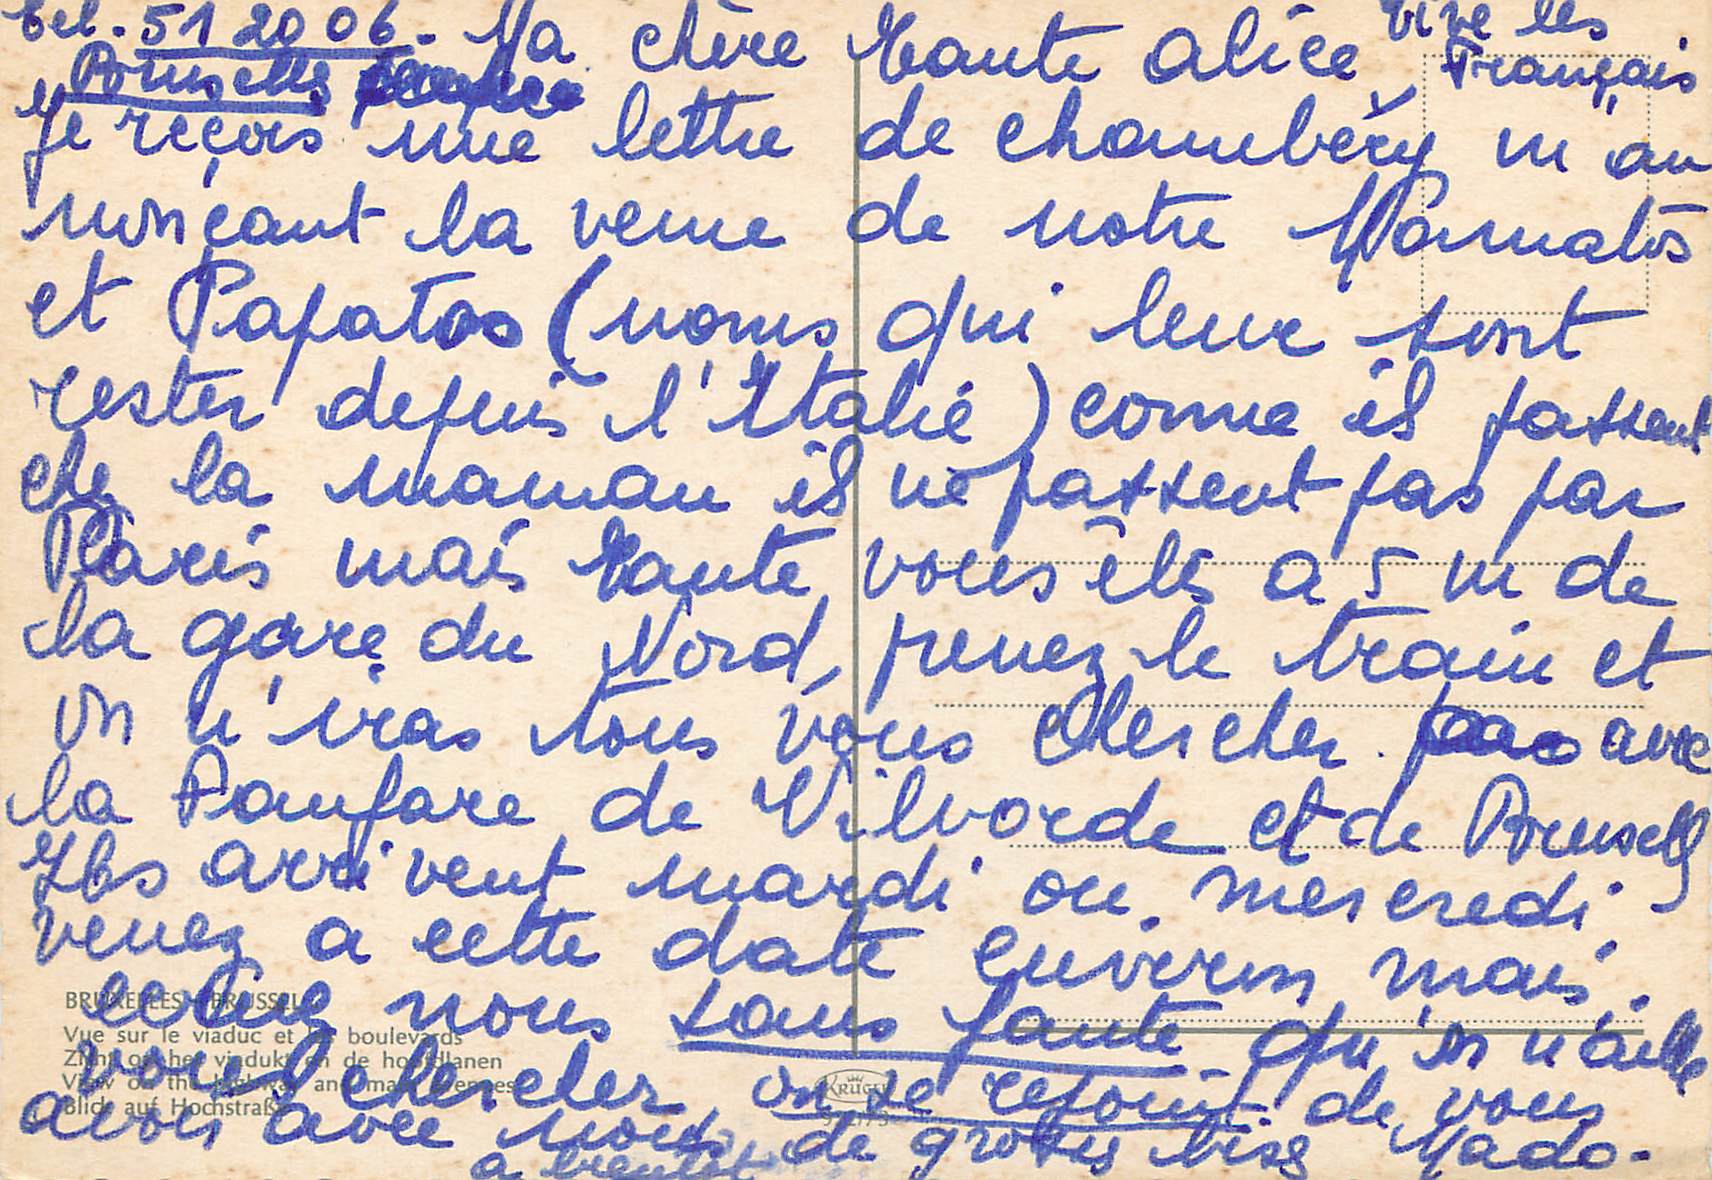 tel. 51 20 06. Ma chère Tante alice Vive les Français
Bruxells
Je reçois une lettre de chambéry m'an
nonçant la venue de notre Mamatos
et Papatos (noms qui leur sont
rester depuis l'Italie) comme il passent
chez la maman il ne passent pas par
Paris mais Tante vous êts a 5 m de
la gare du Nord, prenez le train et
on n'iras tous vous chercher. avec
la Fanfare de Vilvorde et de Bruxells
Ils arrivent mardi ou mercredi,
venez a cette date environ mais.
ecrivez nous sans faute qu'on n'aille
vous chercher, on se rejouit de vous
avoir avec nous, de grosses biss Mado.
a bientot
BRUXELLES - BRUSSEL
Vue sur le viaduc et les boulevards
Zicht op het viadukt en de hoofdlanen
View on the highway and main avenues
Blick auf Hochstraße
KRÜGER